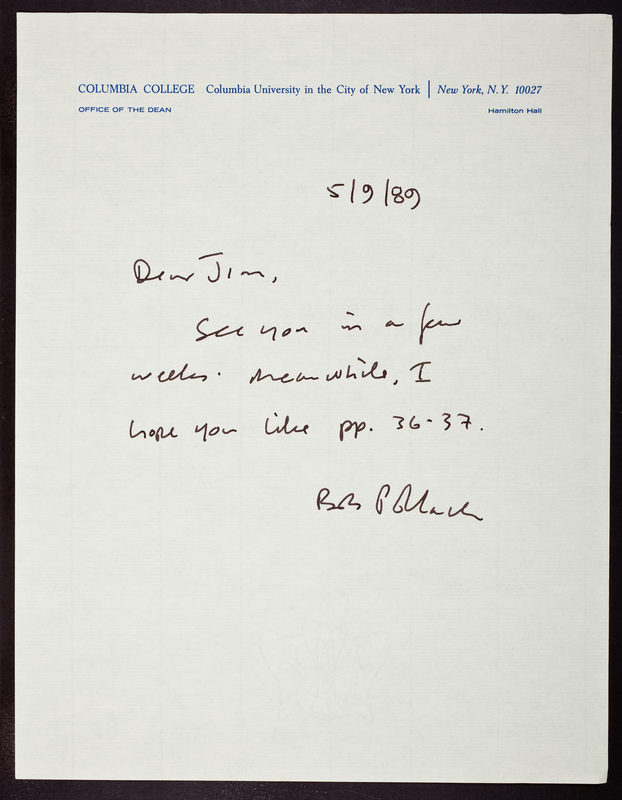 COLUMBIA COLLEGE Columbia University in the City of New York | New York, N. Y. 10027
OFFICE OF THE DEAN Hamilton Hall
5/9/89
Dear Jim,
See you in a few
weeks. Meanwhile, I
hope you like pp. 36-37.
Bob Pollack